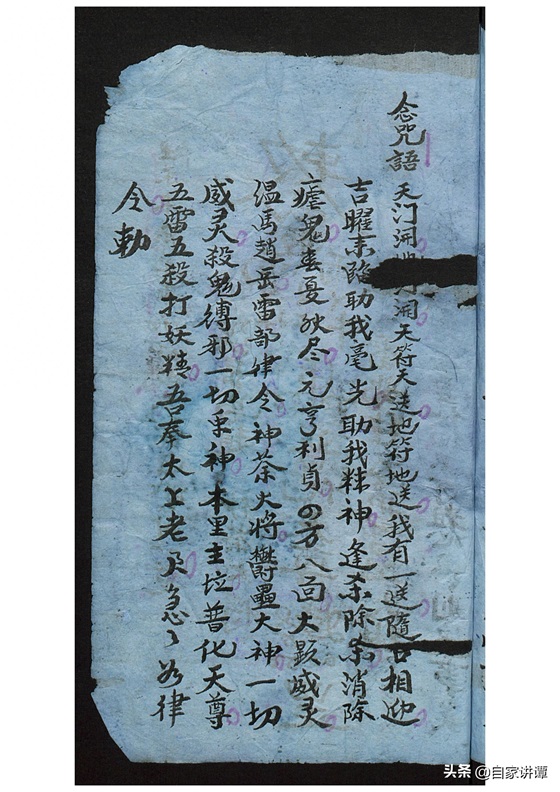 念咒語 天门開地開天符天送地符地送我有一送隨口相迎
吉曜来臨助我毫光助我精神逢杀除杀消除
瘧鬼春夏秋尽元亨利貞四方八面大顕威灵
温馬趙岳雷部律令神荼大将鬱壘大神一切
威灵殺鬼縛邪一切众神本里主垃普化天尊
五雷五殺打妖精吾奉太上老君急〻如律
令勅
头条 @自家讲谭